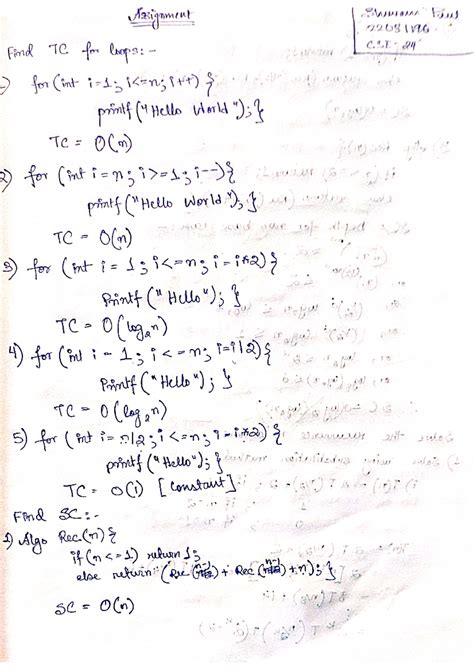 Assignment
C.S.E - 24
Find TC for loops:-
for (int i=1; i<=n; i++) {
printf("Hello World"); }
TC = O(n)
2) for (int i=n; i>=1; i--) {
printf("Hello World"); }
TC = O(n)
3) for (int i=1; i<=n; i=i*2) {
Printf("Hello"); }
TC = O(log₂n)
4) for (int i=1; i<=n; i=i/2) {
Printf("Hello"); }
TC = O(log₂n)
5) for (int i=n/2; i<=n; i=i*2) {
printf("Hello"); }
TC = O(1) [constant]
Find SC:-
1) Algo Rec(n) {
if (n<=1) return 1;
else return (Rec + Rec + n); }
SC = O(n)